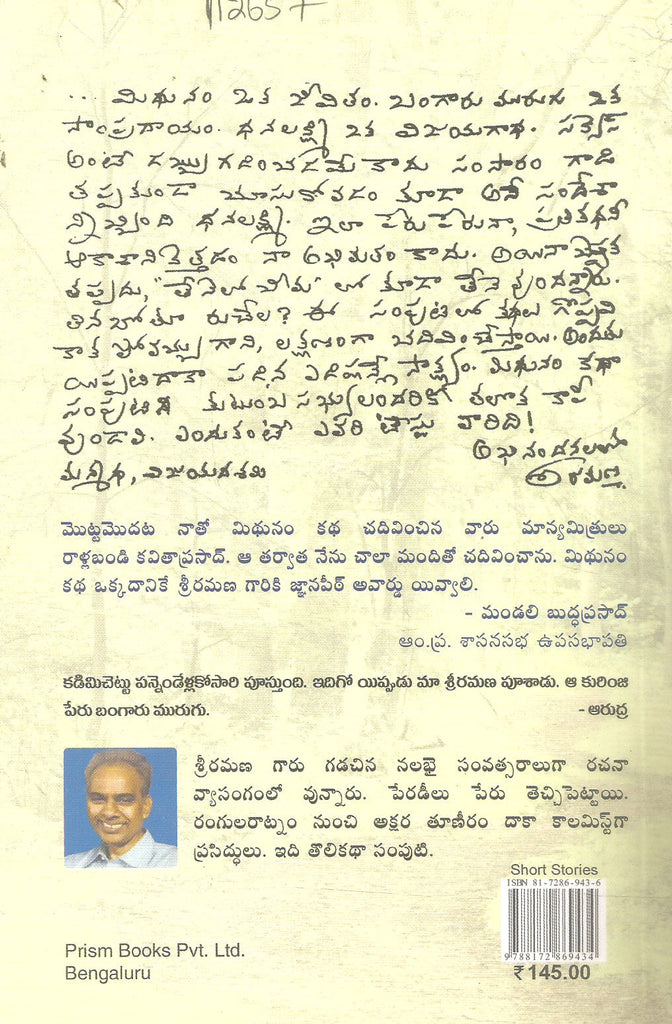 112657
... మిథునం ఒక జీవితం. బంగారు మురుగు ఒక
సాంప్రదాయం. ధనలక్ష్మి ఒక విజయగాథ. సక్సెస్
అంటే డబ్బు గడించడమే కాదు సంసారం గాడి
తప్పకుండా చూసుకోవడం కూడా అనే సందేశా
న్నిచ్చింది ధనలక్ష్మి. ఇలా పేరు పేరునా, ప్రతికథనీ
ఆకాశానికెత్తడం నా అభిమతం కాదు. అయినా చెప్పక
తప్పదు, "తేనెలో చీమ" లో కూడా తేనె వుందన్నారు.
తినబోతూ రుచేల? ఈ సంపుటిలో కథలు గొప్పవి
కాక పోవచ్చు గాని, లక్షణంగా చదివించేస్తాయి. అందుకు
యిప్పటిదాకా పడిన ఎడిషన్లే సాక్ష్యం. మిథునం కథా
సంపుటి కుటుంబ సభ్యులందరికీ తలొక కాపీ
వుండాలి. ఎందుకంటే ఎవరి టేస్టు వారిది!
అభినందనలతో
మన్మథ, విజయదశమి శ్రీరమణ
మొట్టమొదట నాతో మిథునం కథ చదివించిన వారు మాన్యమిత్రులు
రాళ్లబండి కవితాప్రసాద్. ఆ తర్వాత నేను చాలా మందితో చదివించాను. మిథునం
కథ ఒక్కదానికే శ్రీరమణ గారికి జ్ఞానపీఠ్ అవార్డు యివ్వాలి.
- మండలి బుద్ధప్రసాద్
ఆం.ప్ర. శాసనసభ ఉపసభాపతి
కడిమిచెట్టు పన్నెండేళ్లకోసారి పూస్తుంది. ఇదిగో యిప్పుడు మా శ్రీరమణ పూశాడు. ఆ కురింజి
పేరు బంగారు మురుగు. - ఆరుద్ర
శ్రీరమణ గారు గడచిన నలభై సంవత్సరాలుగా రచనా
వ్యాసంగంలో వున్నారు. పేరడీలు పేరు తెచ్చిపెట్టాయి.
రంగులరాట్నం నుంచి అక్షర తూణీరం దాకా కాలమిస్ట్‌గా
ప్రసిద్ధులు. ఇది తొలికథా సంపుటి.
Short Stories
ISBN 81-7286-943-6
9 788172 869434
₹145.00
Prism Books Pvt. Ltd.
Bengaluru